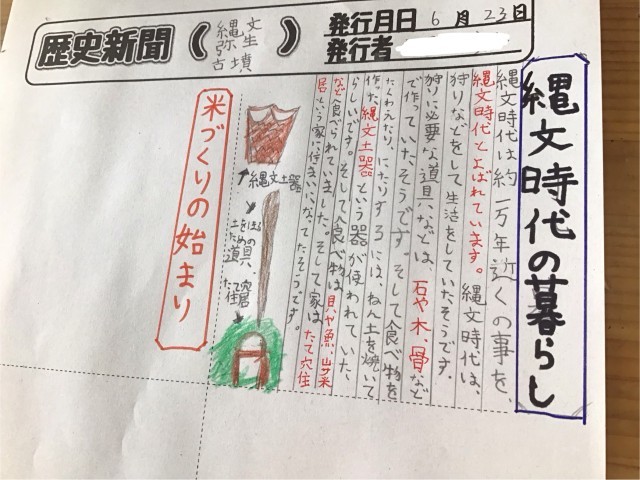 歴史新聞
縄文
弥生
古墳
発行月日 6月23日
発行者
縄文時代の暮らし
縄文時代は約一万年近くの事を、
縄文時代とよばれています。縄文時代は、
狩りなどをして生活をしていたそうです。
狩りに必要な道具などは、石や木、骨など
で作っていたそうです。そして食べ物を
たくわえたり、にたりするには、ねん土を焼いて
作った縄文土器という器が使われていた
らしいです。そして食べ物は貝や魚、山菜
など食べられていました。そして家は、たて穴住
居という家に住まいになってたそうです。
縄文土器
土をほるための道具
たて穴住居
米づくりの始まり